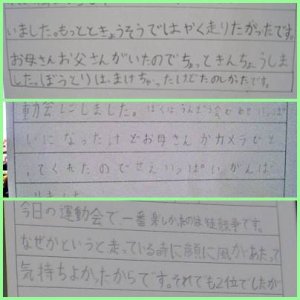 いました。もっときょうそうではやく走りたかったです。
お母さんお父さんがいたのでちょっときんちょうしま
した。ぼうとりは、まけちゃったけどたのしかたです。
動会にしました。ぼくはうんどう会
いになったけどお母さんがカメラでと
ってくれたのでせえいっぱいがんば
今日の運動会で、一番楽しかったのは徒競争です。
なぜかというと走っている時に顔に風があたって
気持ちよかったからです。それでも2位でしたが